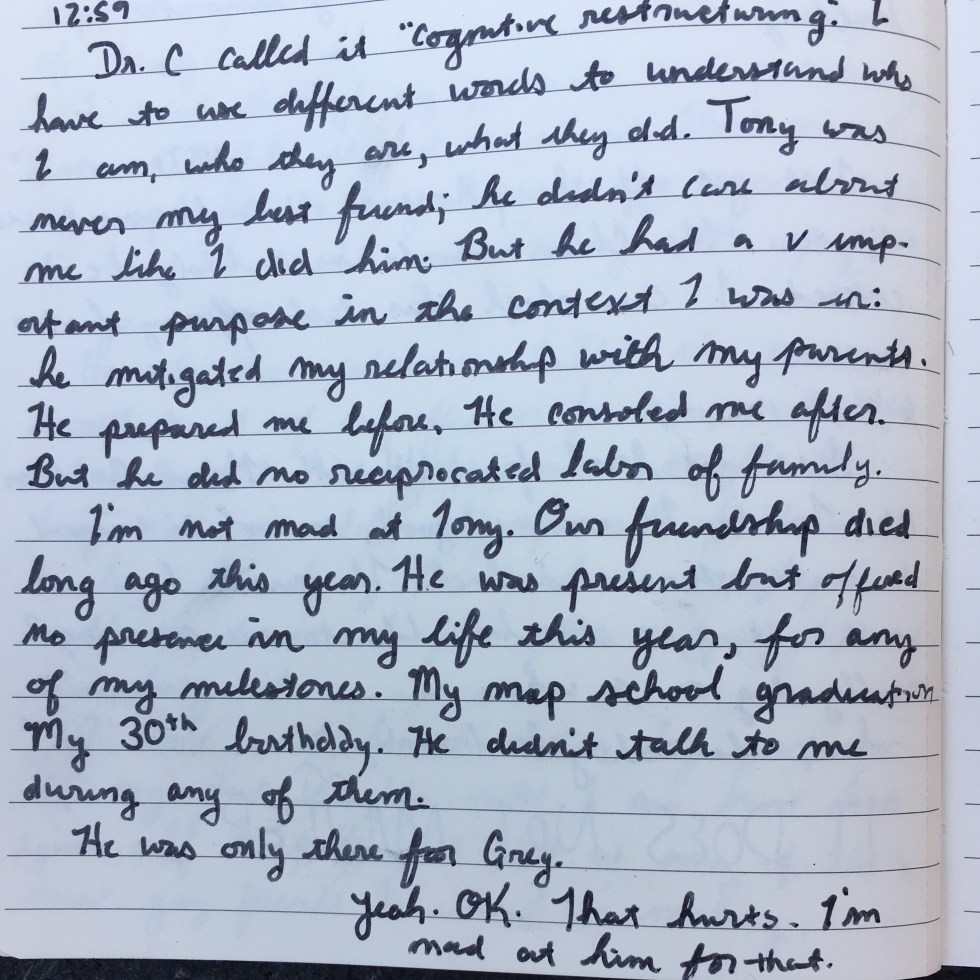 12:59
Dr. C called it "cognitive restructuring." I
have to use different words to understand who
I am, who they are, what they did. Tony was
never my best friend; he didn't care about
me like I did him. But he had a v imp-
ortant purpose in the context I was in:
he mitigated my relationship with my parents.
He prepared me before, He consoled me after.
But he did no reciprocated labor of family.
I'm not mad at Tony. Our friendship died
long ago this year. He was present but offered
no presence in my life this year, for any
of my milestones. My map school graduation
My 30th birthday. He didn't talk to me
during any of them.
He was only there for Grey.
Yeah. OK. That hurts. I'm
mad at him for that.